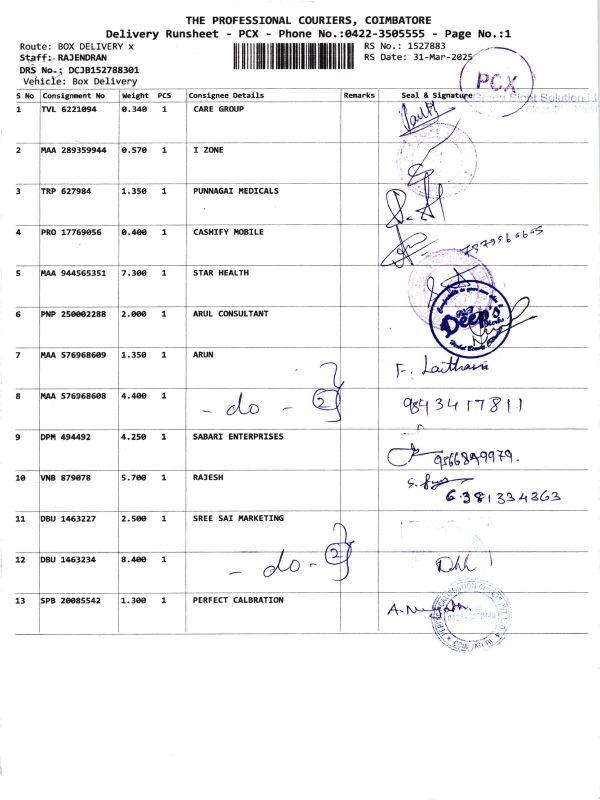 THE PROFESSIONAL COURIERS, COIMBATORE
Delivery Runsheet - PCX - Phone No.:0422-3505555 - Page No.:1
Route: BOX DELIVERY x RS No.: 1527883
Staff: RAJENDRAN RS Date: 31-Mar-2025
DRS No.: DCJB152788301
Vehicle: Box Delivery
PCX
S No Consignment No Weight PCS Consignee Details Remarks Seal & Signature
1 TVL 6221094 0.340 1 CARE GROUP
2 MAA 289359944 0.570 1 I ZONE
3 TRP 627984 1.350 1 PUNNAGAI MEDICALS
4 PRO 17769056 0.400 1 CASHIFY MOBILE
5 MAA 944565351 7.300 1 STAR HEALTH
6 PNP 250002288 2.000 1 ARUL CONSULTANT
Deep's
7 MAA 576968609 1.350 1 ARUN
8 MAA 576968608 4.400 1 - do - 2 9843417811
9 DPM 494492 4.250 1 SABARI ENTERPRISES
9566849979.
10 VNB 879078 5.700 1 RAJESH
6381334363
11 DBU 1463227 2.500 1 SREE SAI MARKETING
12 DBU 1463234 8.400 1 - do - 2
13 SPB 20085542 1.300 1 PERFECT CALBRATION